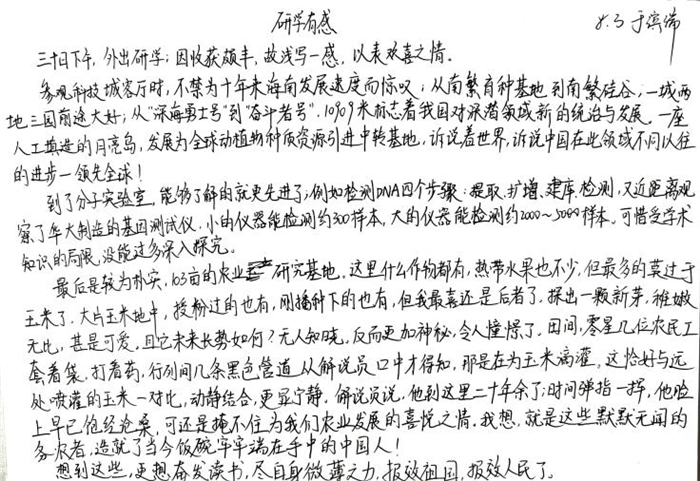 研学有感
8.3 于滨绵
三十日下午，外出研学；因收获颇丰，故浅写一感，以表欢喜之情。
参观科技城客厅时，不禁为十年来海南发展速度而惊叹；从南繁育种基地到南繁硅谷；一城两
地三园前途大好；从“深海勇士号”到“奋斗者号”，10909米标志着我国对深潜领域新的统治与发展。一座
人工填造的月亮岛，发展为全球动植物种质资源引进中转基地，诉说着世界，诉说中国在此领域不同以往
的进步—领先全球！
到了分子实验室，能够了解的就更先进了；例如检测DNA四个步骤：提取、扩增、建库、检测，又近距离观
察了华大制造的基因测试仪，小的仪器能检测约300样本，大的仪器能检测约2000～5000样本。可惜受学术
知识的局限，没能过多深入探究。
最后是较为朴实，105亩的农业研究基地，这里什么作物都有，热带水果也不少，但最多的莫过于
玉米了。大片玉米地中，授粉过的也有，刚播种下的也有，但我最喜还是后者了。探出一颗新芽，稚嫩
无比，甚是可爱，且它未来长势如何？无人知晓，反而更加神秘，令人憧憬了。田间，零星几位农民工
套着袋，打着药，行列间几条黑色管道，从解说员口中才得知，那是在为玉米滴灌。这恰好与远
处喷灌的玉米一对比，动静结合，更显宁静。解说员说，他到这里二十年余了；时间弹指一挥，他脸
上早已饱经沧桑，可还是掩不住为我们农业发展的喜悦之情。我想，就是这些默默无闻的
务农者，造就了当今饭碗牢牢端在手中的中国人！
想到这些，更想奋发读书，尽自身微薄之力，报效祖国，报效人民了。